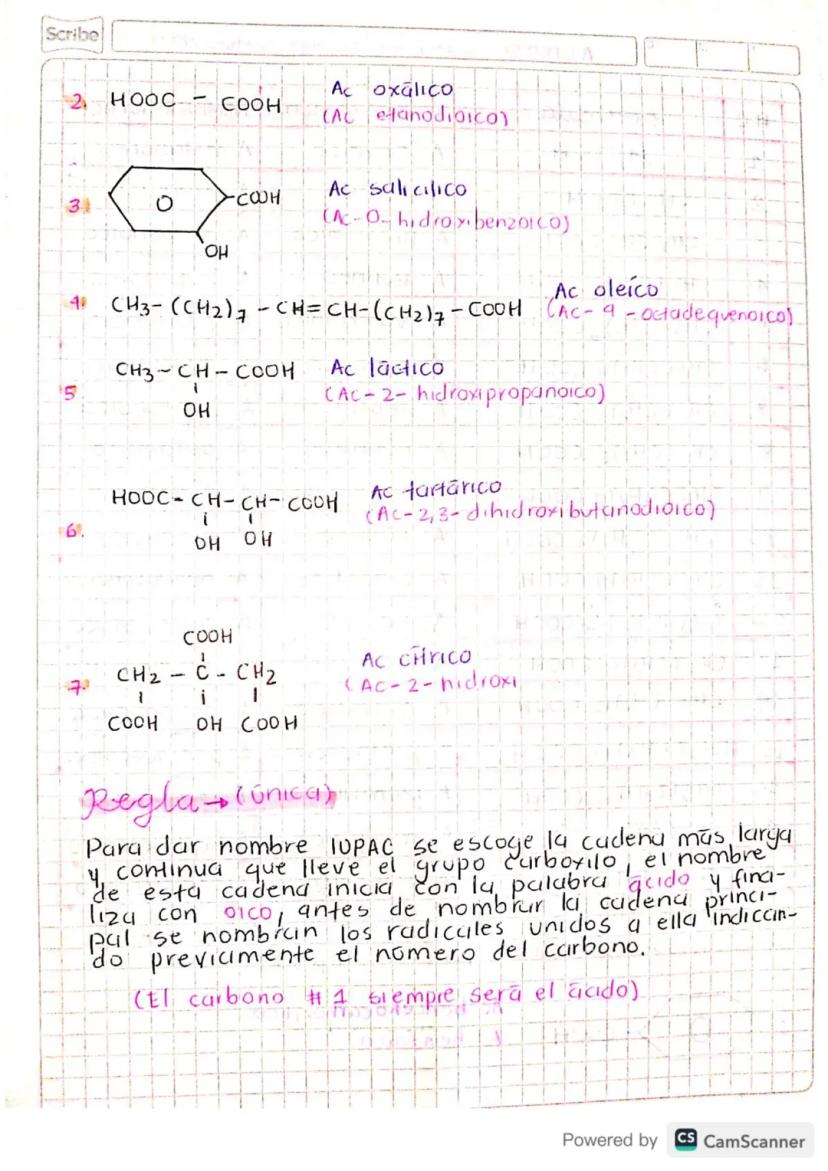 Scribe
2. HOOC - COOH Ac oxálico
(Ac etanodioico)
3. O -COOH Ac salicilico
OH (Ac-O-hidroxibenzoico)
4. CH3-(CH2)7-CH=CH-(CH2)7-COOH Ac oleíco
(Ac-9-octadequenoico)
5 CH3-CH-COOH Ac láctico
OH (Ac-2-hidroxipropanoico)
6. HOOC-CH-CH-COOH Ac tartárico
OH OH (Ac-2,3-dihidroxibutanodioico)
COOH
7. CH2-C-CH2 Ac cítrico
COOH OH COOH (Ac-2-hidroxi
Regla→(única)
Para dar nombre IUPAC se escoge la cadena más larga
y continua que lleve el grupo carboxilo, el nombre
de esta cadena inicia con la palabra ácido y fina-
liza con oico, antes de nombrar la cadena princi-
pal se nombran los radicales unidos a ella indican-
do previamente el número del carbono.
(El carbono #1 siempre será el ácido)
Powered by CS CamScanner